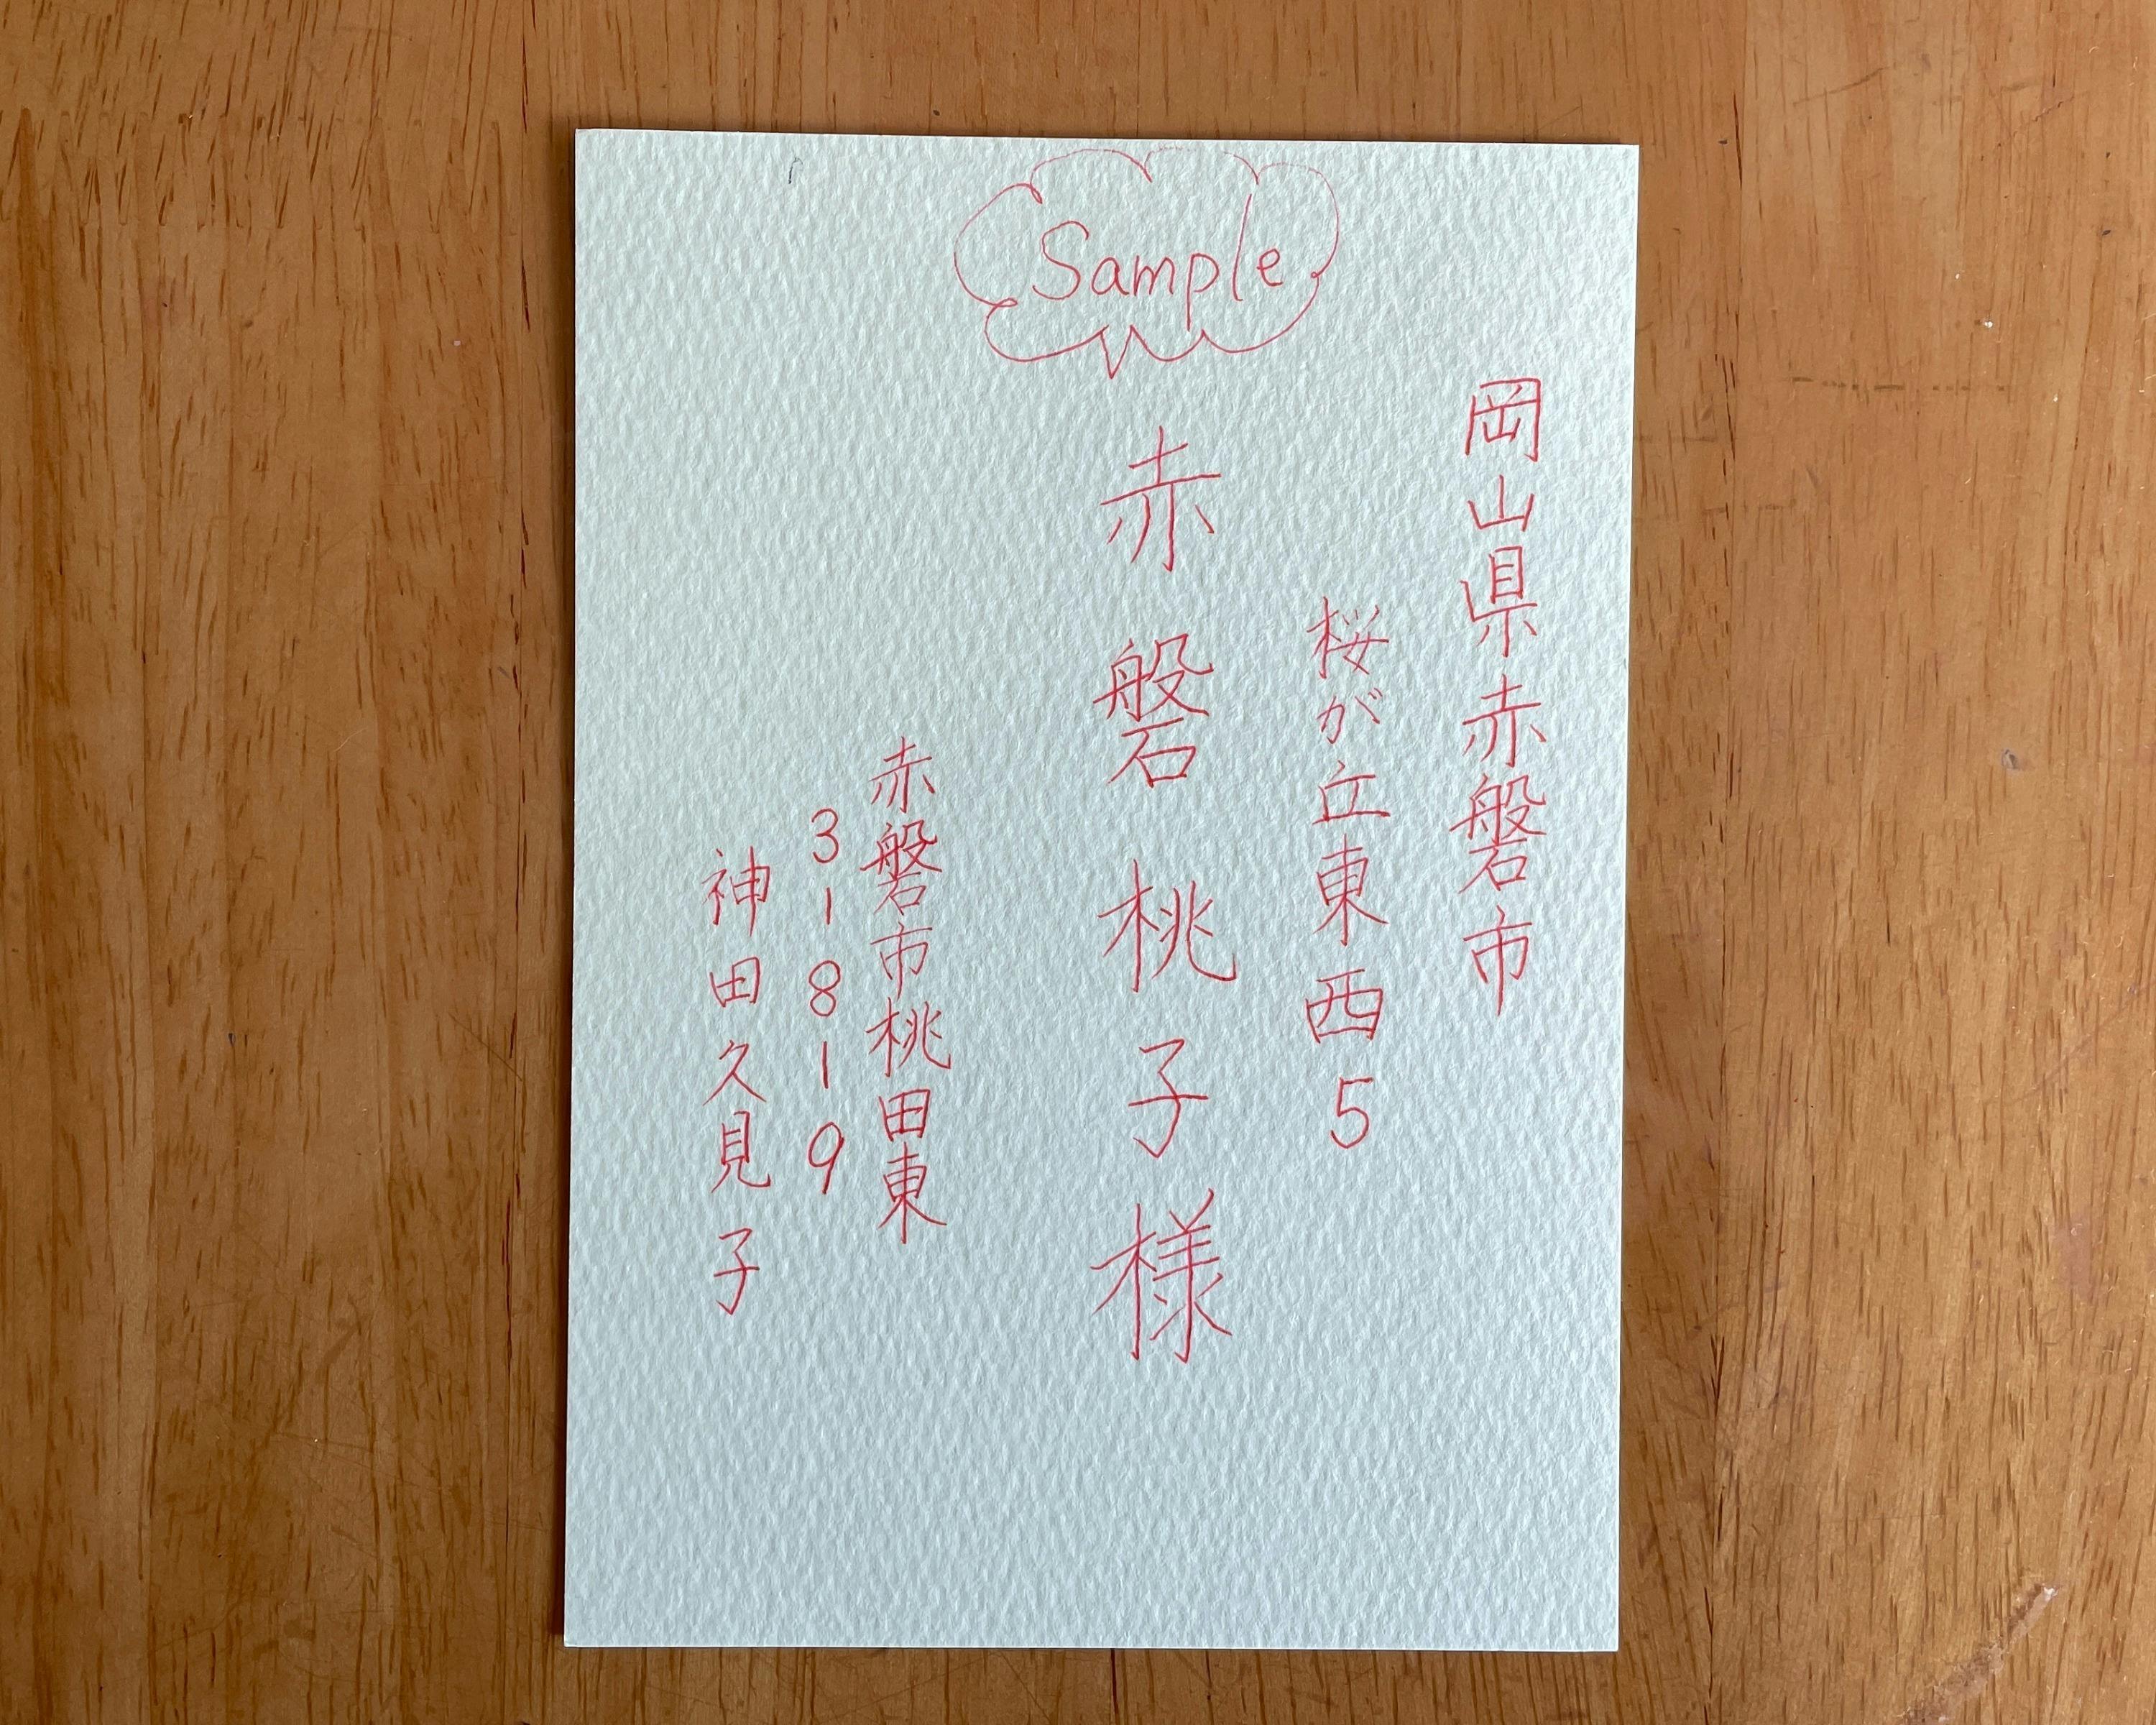 Sample
岡山県赤磐市
桜が丘東西5
赤磐桃子様
赤磐市桃田東
3-8-9
神田久見子